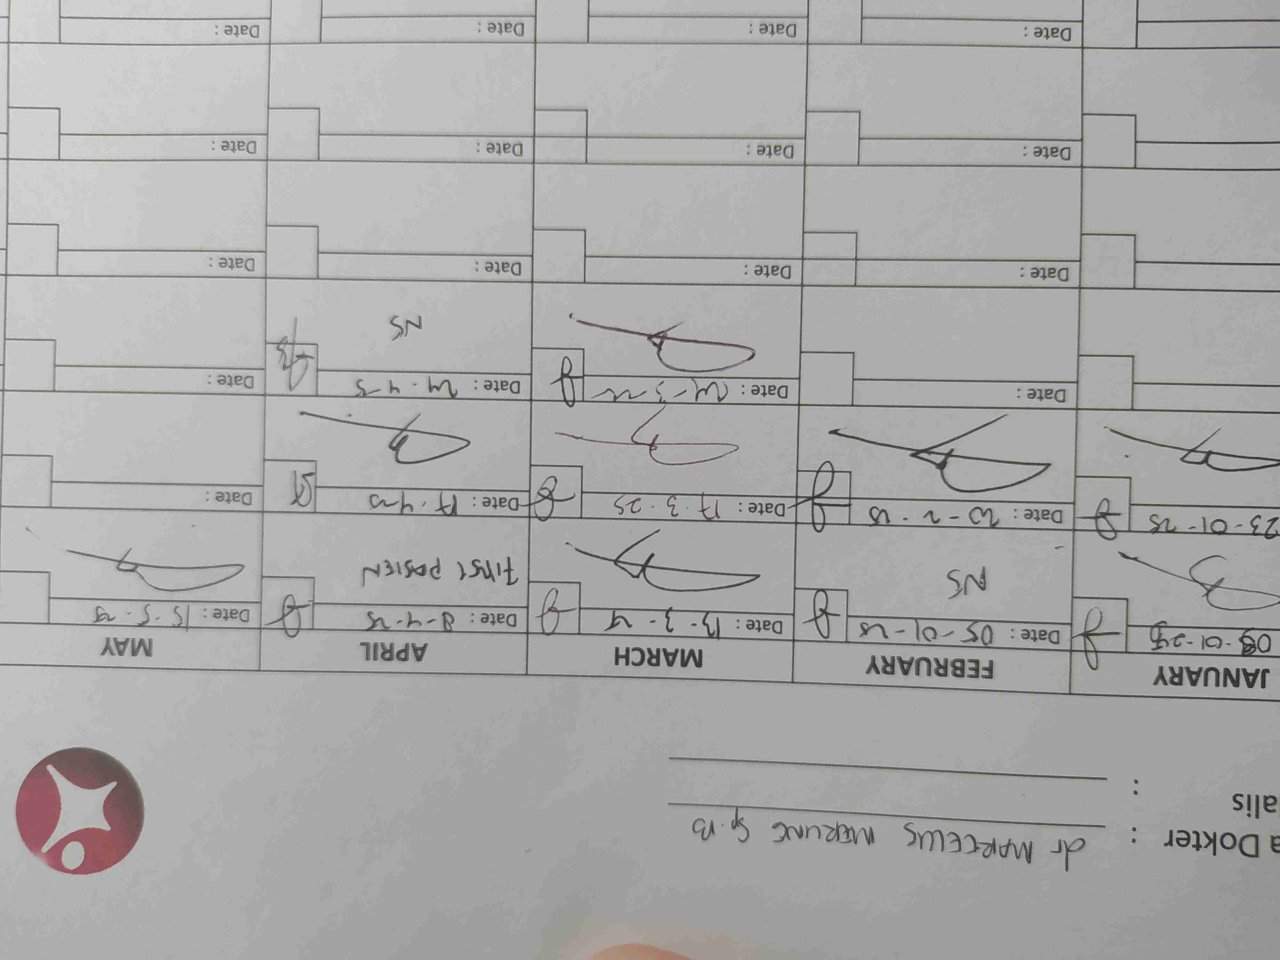 a Dokter : dr MARCELLUS MERUNG Sp.B
alis :
JANUARY FEBRUARY MARCH APRIL MAY
Date : 05-01-25 Date : 13-3-25 Date : 8-4-25 Date : 15-5-25
NS FIRST PASIEN
23-01-25 Date : 20-2-25 Date : 17.3.25 Date : 17.4.25 Date :
Date : Date : 24-3-25 Date : 24.4-25 Date :
NS
Date : Date : Date : Date :
Date : Date : Date : Date :
Date : Date : Date : Date :